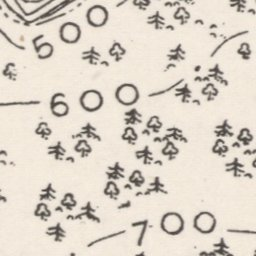 500
600
700